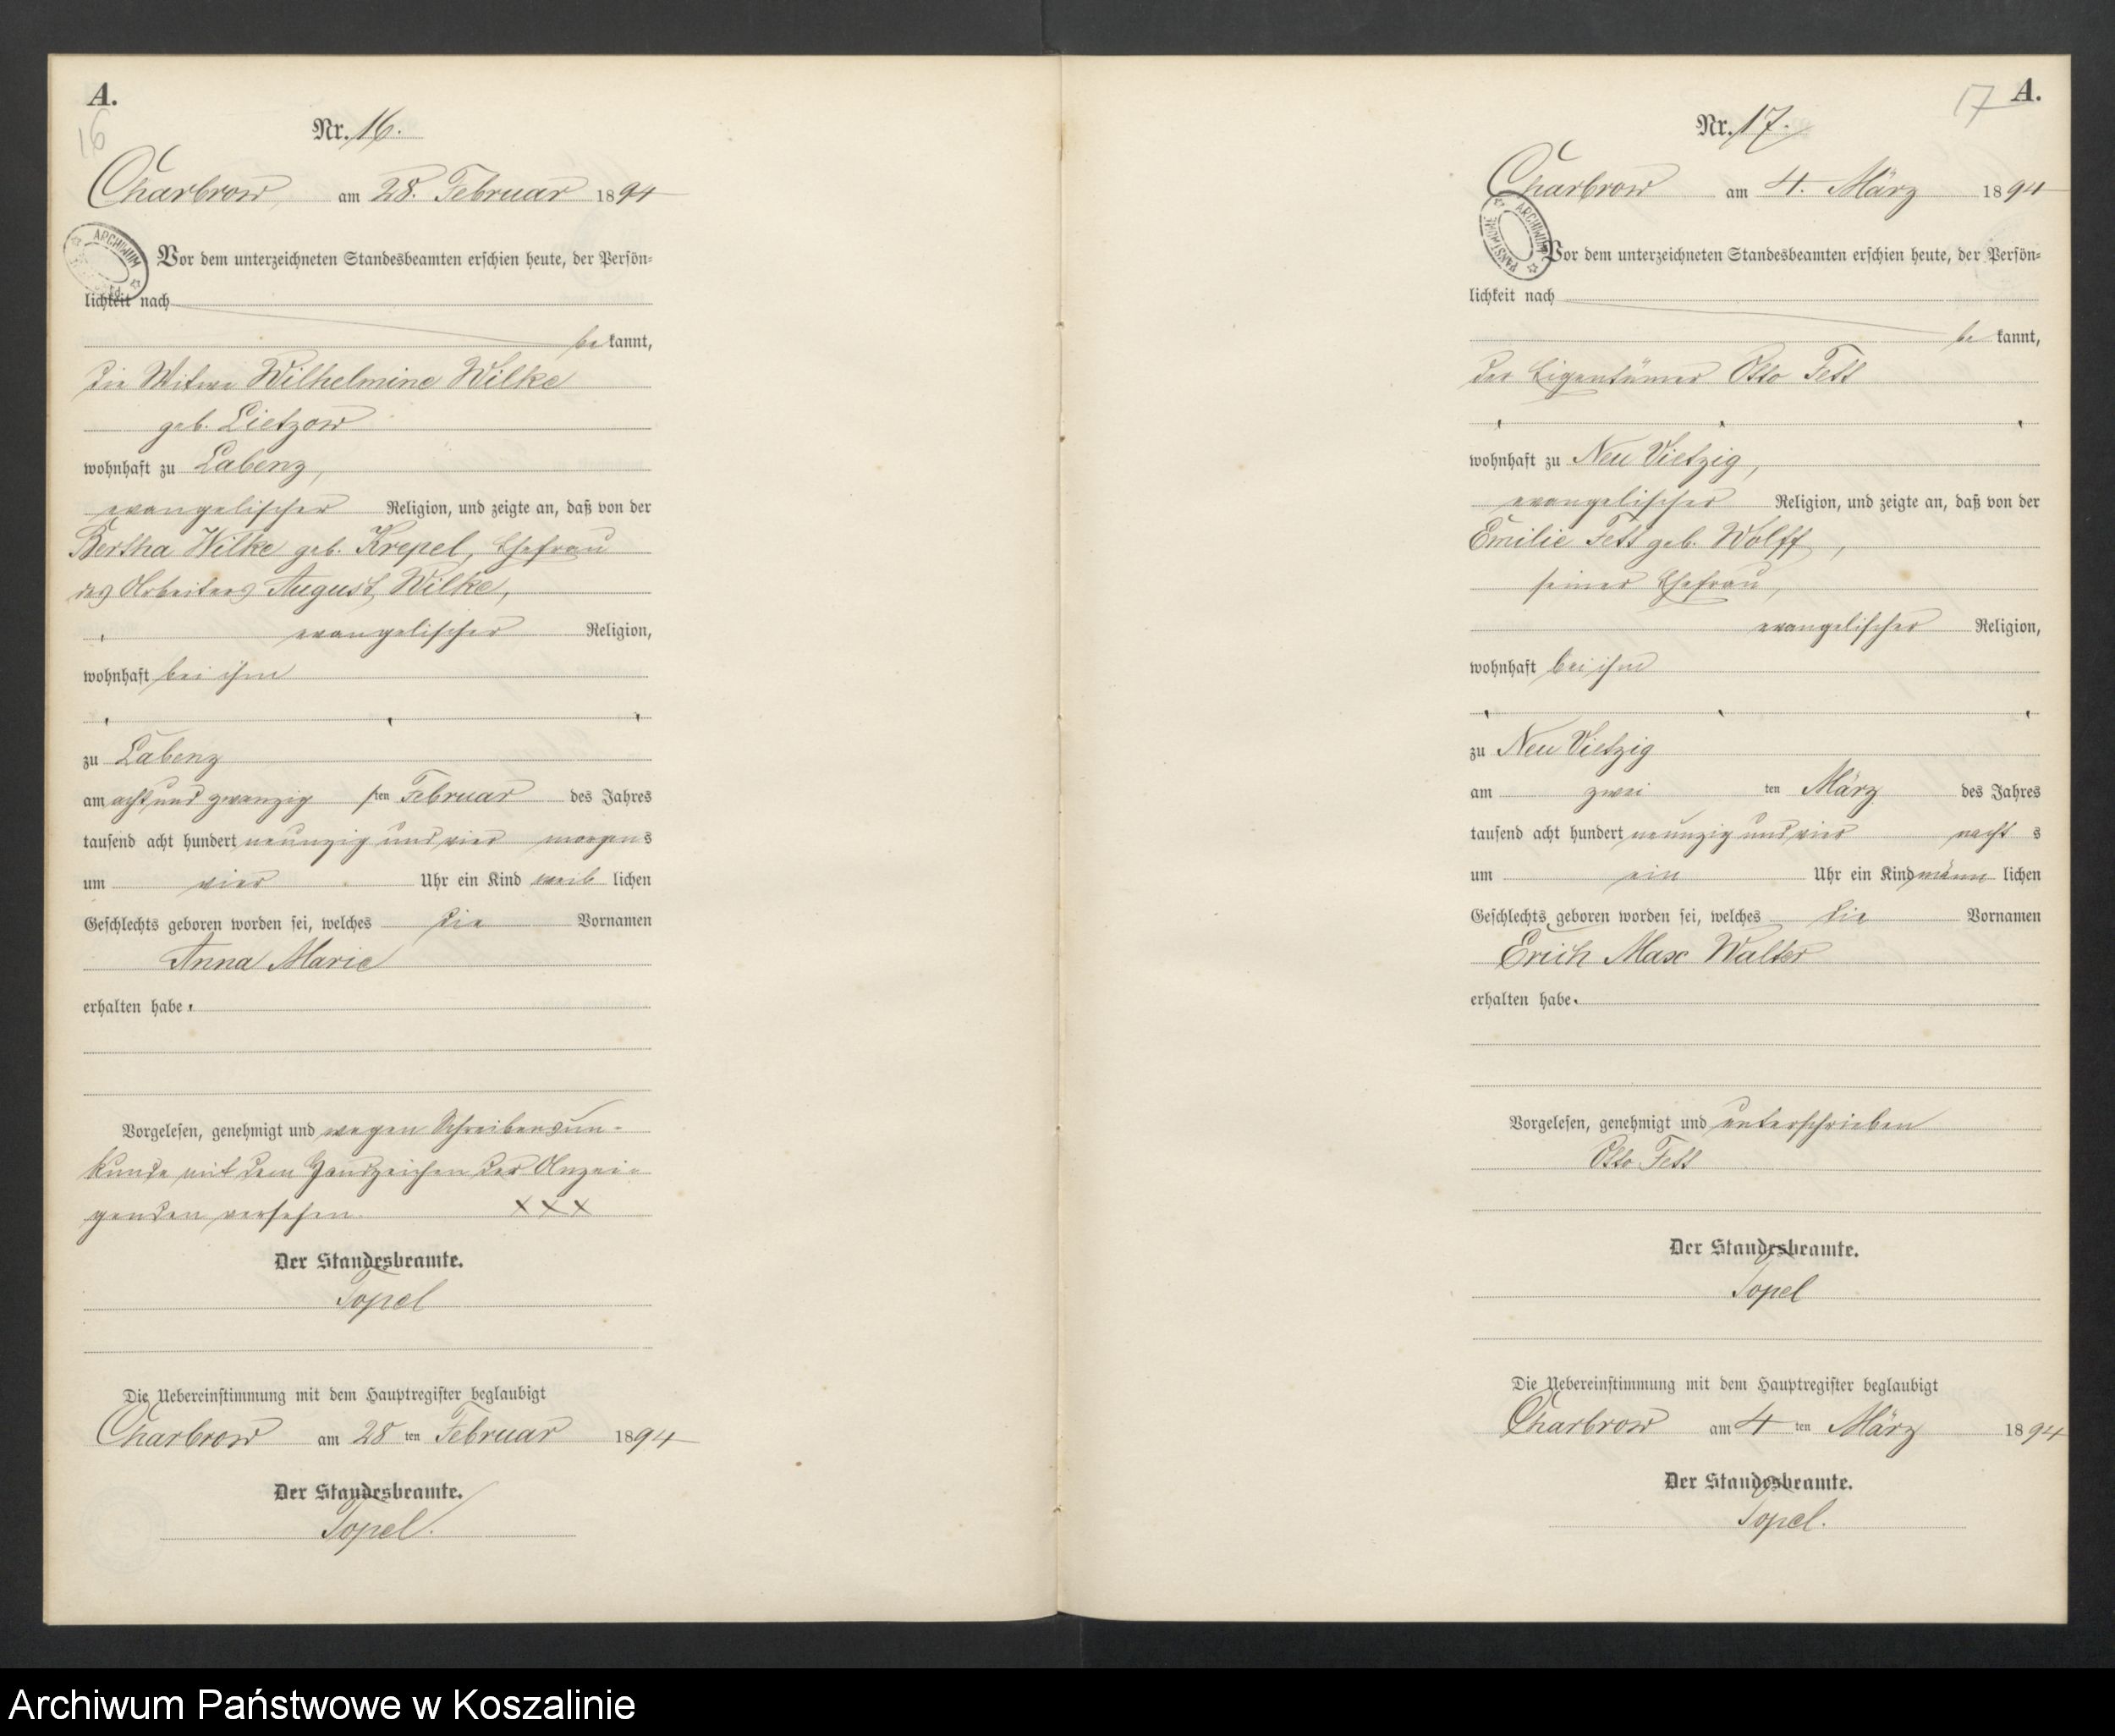 A.
16
Nr. 16.
Charbrow, am 28. Februar 1894
ARCHIWUM
Vor dem unterzeichneten Standesbeamten erschien heute, der Persön-
lichkeit nach
bekannt,
die Witwe Wilhelmine Wilke
geb. Lietzow
wohnhaft zu Labenz,
evangelischer Religion, und zeigte an, daß von der
Bertha Wilke geb. Krepel, Ehefrau
des Arbeiters August Wilke,
evangelischer Religion,
wohnhaft bei ihm
zu Labenz
am acht und zwanzigsten Februar des Jahres
tausend acht hundert neunzig und vier morgens
um vier Uhr ein Kind weiblichen
Geschlechts geboren worden sei, welches die Vornamen
Anna Marie
erhalten habe.
Vorgelesen, genehmigt und wegen Schreibensun-
kunde mit dem Handzeichen der Anzei-
genden versehen. XXX
Der Standesbeamte.
Topel
Die Uebereinstimmung mit dem Hauptregister beglaubigt
Charbrow am 28ten Februar 1894
Der Standesbeamte.
Topel.
17 A.
Nr. 17.
Charbrow am 4. März 1894
ARCHIWUM PAŃSTWOWE
Vor dem unterzeichneten Standesbeamten erschien heute, der Persön-
lichkeit nach
bekannt,
der Eigentümer Otto Fett
wohnhaft zu Neu Vietzig,
evangelischer Religion, und zeigte an, daß von der
Emilie Fett geb. Wolff,
seiner Ehefrau,
evangelischer Religion,
wohnhaft bei ihm
zu Neu Vietzig
am zweiten März des Jahres
tausend acht hundert neunzig und vier nachts
um ein Uhr ein Kind männlichen
Geschlechts geboren worden sei, welches die Vornamen
Erich Max Walter
erhalten habe.
Vorgelesen, genehmigt und unterschrieben
Otto Fett
Der Standesbeamte.
Topel
Die Uebereinstimmung mit dem Hauptregister beglaubigt
Charbrow am 4ten März 1894
Der Standesbeamte.
Topel.
Archiwum Państwowe w Koszalinie